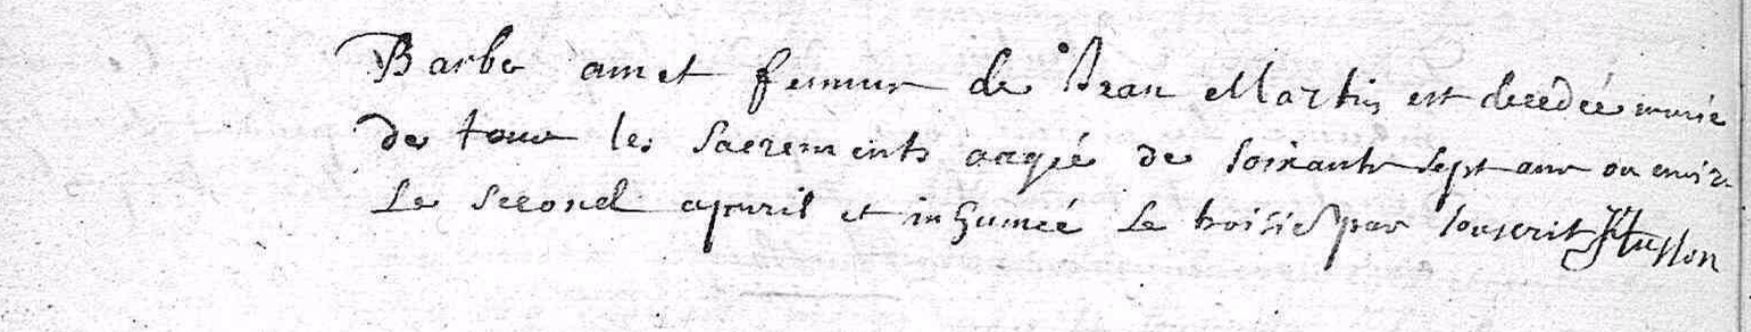 Barbe amet femme de Jean Martin est decedée munie
de tous les sacrements aagée de soixante sept ans ou envir.
Le second apuril et inhumée Le troisie par souscrit Husson